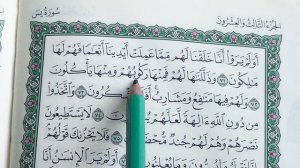 الجزء الثالث والعشرون سورة يس
أَوَلَمْ يَرَوْا أَنَّا خَلَقْنَا لَهُم مِّمَّا عَمِلَتْ أَيْدِينَا أَنْعَامًا فَهُمْ لَهَا
مَالِكُونَ ٧١ وَذَلَّلْنَاهَا لَهُمْ فَمِنْهَا رَكُوبُهُمْ وَمِنْهَا يَأْكُلُونَ
٧٢ وَلَهُمْ فِيهَا مَنَافِعُ وَمَشَارِبُ ٧٣ وَاتَّخَذُوا
مِن دُونِ اللَّهِ ءَالِهَةً ٧٤ لَا يَسْتَطِيعُونَ
نَصْرَهُمْ وَهُمْ لَهُمْ جُندٌ مُّحْضَرُونَ ٧٥ فَلَا يَحْزُنكَ قَوْلُهُمْ